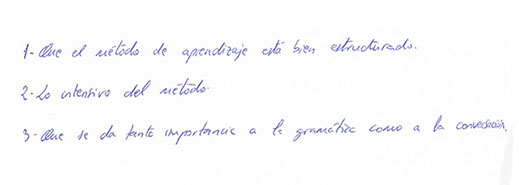 1- Que el método de aprendizaje está bien estructurado.
2- Lo intensivo del método.
3- Que se da tanta importancia a la gramática como a la conversación.